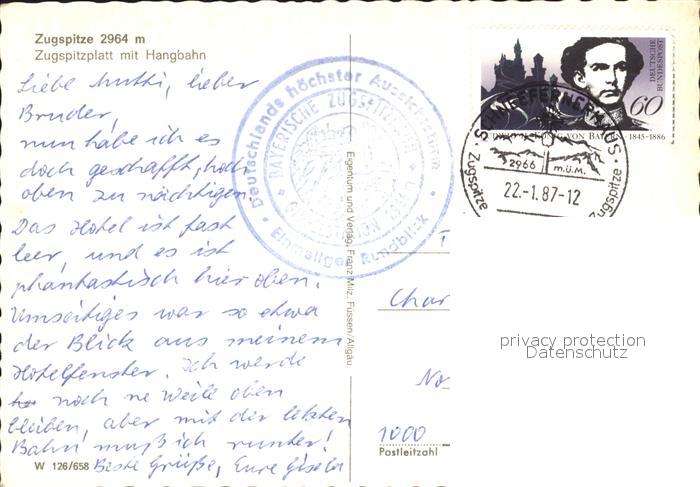 Zugspitze 2964 m
Zugspitzplatt mit Hangbahn
Liebe Mutti, lieber
Bruder,
nun habe ich es
doch geschafft, hoch
oben zu nächtigen.
Das Hotel ist fast
leer, und es ist
phantastisch hier oben.
Umseitiges war so etwa
der Blick aus meinem
Hotelfenster. Ich werde
noch ne Weile oben
bleiben, aber mit der letzten
Bahn muß ich runter!
W 126/658 Beste Grüße, Eure Gisela
Deutschlands höchster Aussichtsturm
Einmaliger Rundblick
BAYERISCHE ZUGSPITZBAHN
Eigentum und Verlag, Franz Milz, Füssen/Allgäu
DEUTSCHE
BUNDESPOST
60
LUDWIG II. KÖNIG VON BAYERN · 1845-1886
SCHNEEFERNERHAUS
2966 m.ü.M.
Zugspitze
22.-1.87-12
Zugspitze
Char
No
1000
Postleitzahl
privacy protection
Datenschutz